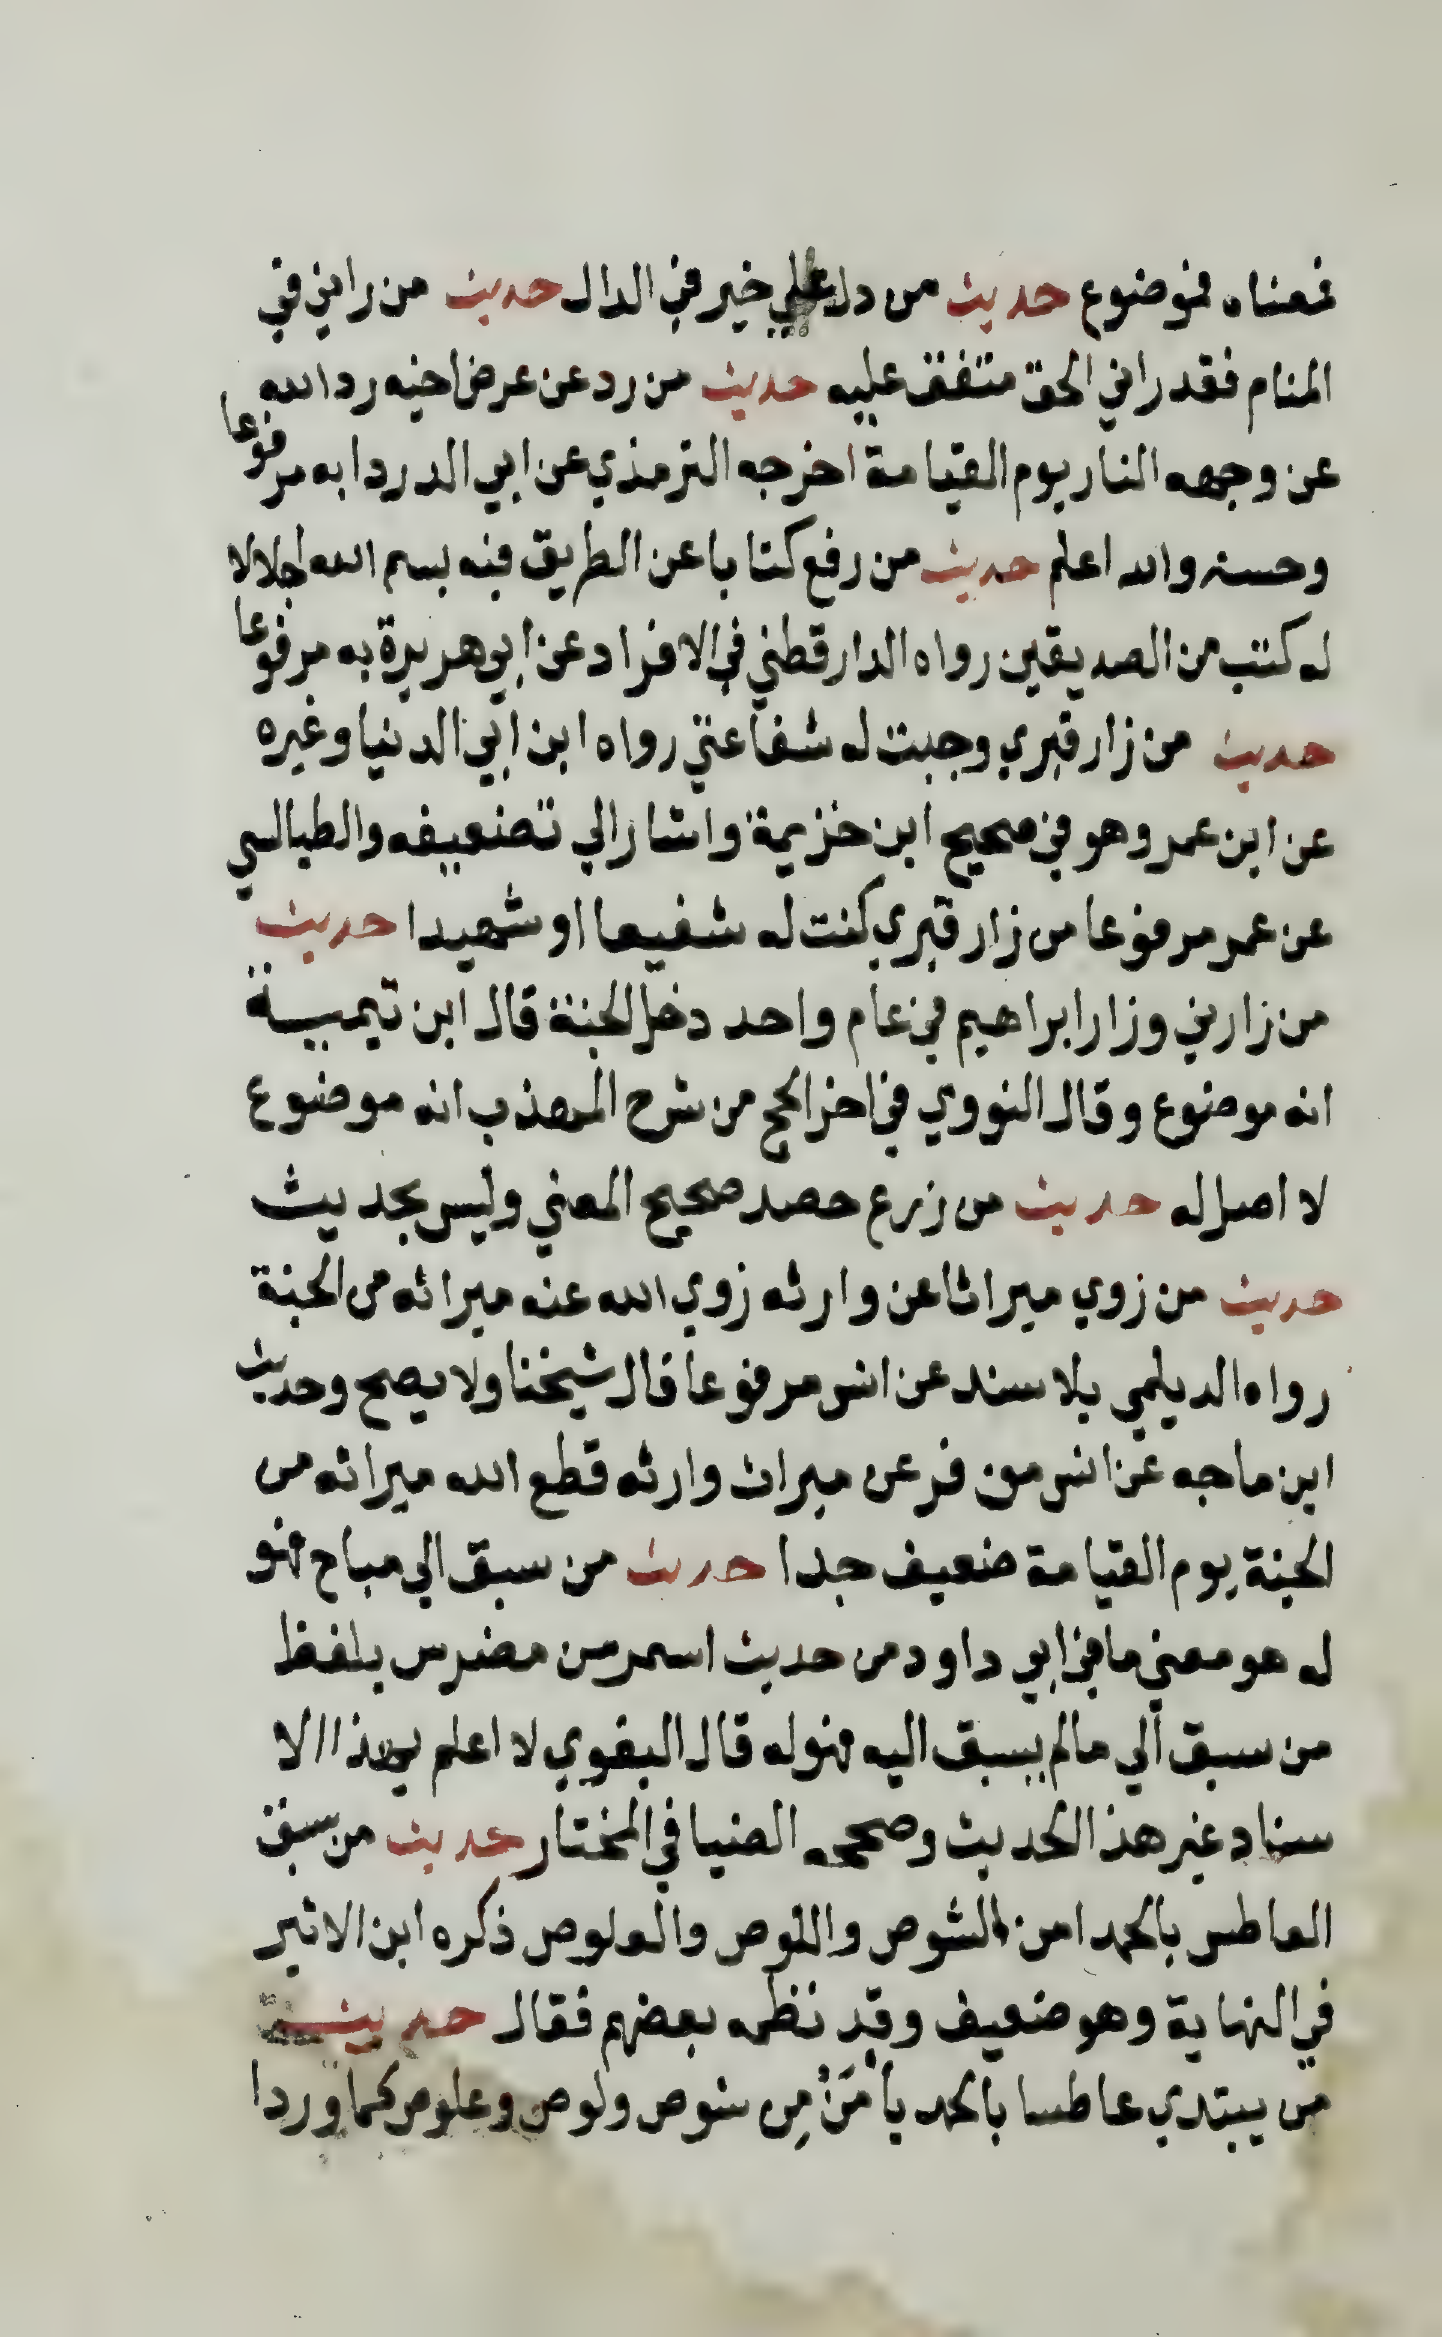 فمعناه فموضوع حديث من دل علي خير في الدال حديث من راني في
المنام فقد راني الحق متفق عليه حديث من رد عن عرض اخيه رد الله
عن وجهه النار يوم القيامة اخرجه الترمذي عن ابي الدردا به مرفوعا
وحسنه والله اعلم حديث من رفع كتابا عن الطريق فيه بسم الله اجلالا
له كتب من الصديقين رواه الدارقطني في الافراد عن ابي هريرة به مرفوعا
حديث من زار قبري وجبت له شفاعتي رواه ابن ابي الدنيا وغيره
عن ابن عمر وهو في صحيح ابن خزيمة واشار الي تضعيفه والطيالسي
عن عمر مرفوعا من زار قبري كنت له شفيعا او شهيدا حديث
من زارني وزار ابراهيم في عام واحد دخل الجنة قال ابن تيمية
انه موضوع وقال النووي في اخر الحج من شرح المهذب انه موضوع
لا اصل له حديث من زرع حصد صحيح المعني وليس بحديث
حديث من زوي ميراثا عن وارثه زوي الله عنه ميراثه من الجنة
رواه الديلمي بلا سند عن انس مرفوعا قال شيخنا ولا يصح وحديث
ابن ماجه عن انس من فر عن ميراث وارثه قطع الله ميراثه من
الجنة يوم القيامة ضعيف جدا حديث من سبق الي مباح فهو
له هو معني ما في ابي داود من حديث اسمر بن مضرس بلفظ
من سبق الي مالم يسبق اليه فهو له قال البغوي لا اعلم بهذا الا
سناد غير هذا الحديث وصححه الضيا في المختار حديث من سبق
العاطس بالحمد امن الشوص واللوص والعلوص ذكره ابن الاثير
في النهاية وهو ضعيف وقد نظمه بعضهم فقال حديث
من يبتدي عاطسا بالحمد يأمن من شوص ولوص وعلوص كما وردا